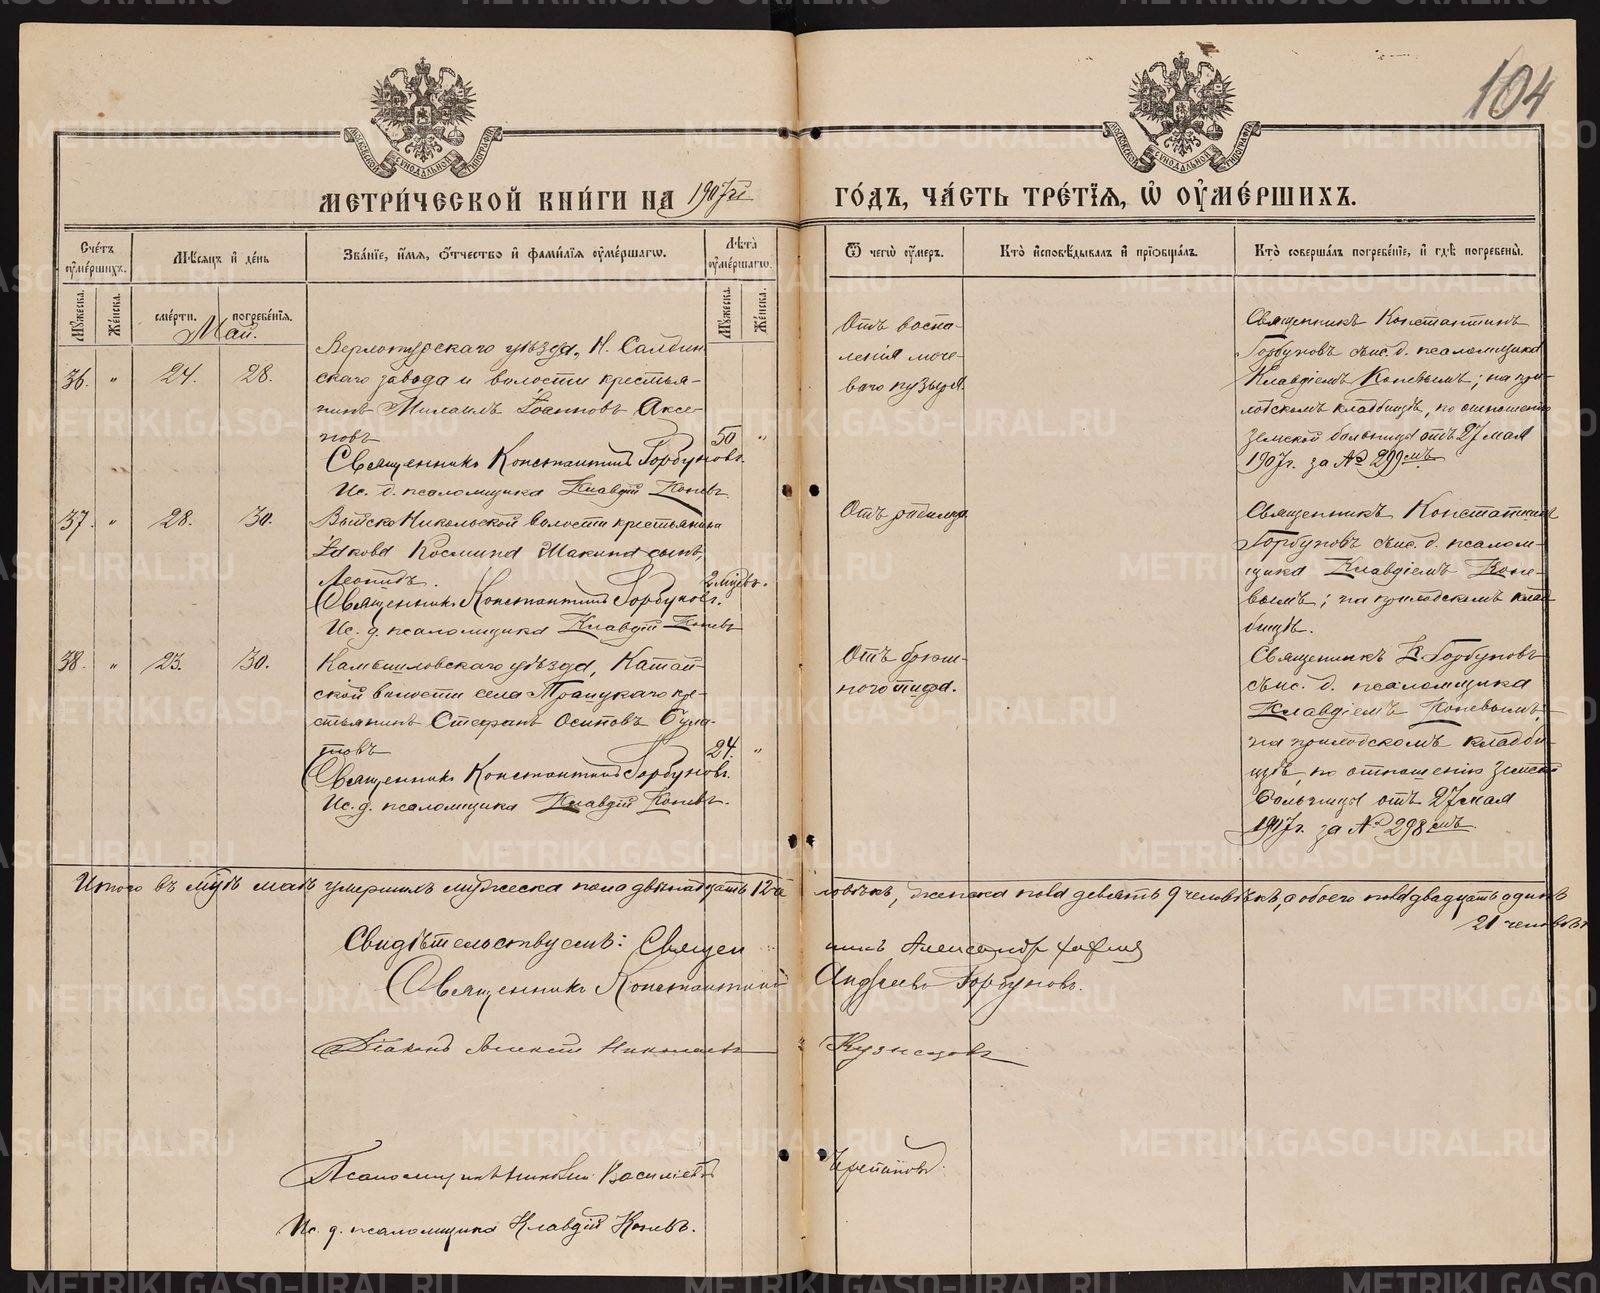 104
МОСКОВСКОЙ СѴНОДАЛЬНОЙ ТИПОГРАФІИ
МОСКОВСКОЙ СѴНОДАЛЬНОЙ ТИПОГРАФІИ
МЕТРИ́ЧЕСКОЙ КНИ́ГИ НА 1907й ГО́ДЪ, ЧА́СТЬ ТРЕ́ТІЯ, Ѡ ОУ҆МЕ́РШИХЪ.
Сче́тъ оу҆ме́ршихъ.
Мꙋ́жеска.
Же́нска.
Мѣ́сяцъ и҆ де́нь
сме́рти.
погребе́нія.
Зва́ніе, и҆́мя, ѻ҆́тчество и҆ фами́лія оу҆ме́ршагѡ.
Лѣ́та оу҆ме́ршагѡ.
Мꙋ́жеска.
Же́нска.
Ѿ чегѡ̀ оу҆́меръ.
Кто̀ и҆сповѣ́дывалъ и҆ пріѡбща́лъ.
Кто̀ соверша́лъ погребе́ніе, и҆ гдѣ̀ погребены̀.
Май.
36. " 24. 28.
Верхотурскаго уѣзда, Н. Салдин
скаго завода и волости крестья-
нинъ Михаилъ Іоанновъ Аксе-
новъ
50 "
Священникъ Константинъ Горбуновъ.
Ис. д. псаломщика Клавдій Коневъ
Отъ воспа-
ленія моче-
ваго пузыря.
Священникъ Константинъ
Горбуновъ съ ис. д. псаломщика
Клавдіемъ Коневымъ; на при-
ходскомъ кладбищѣ, по отношенію
земской больницы отъ 27 мая
1907г. за № 299мъ
37. " 28. 30.
Выйско Никольской волости крестьянина
Іакова Космина Шакина сынъ,
Леонидъ.
2 мцвъ.
Священникъ Константинъ Горбуновъ.
Ис. д. псаломщика Клавдій Коневъ
Отъ родимца
Священникъ Константинъ
Горбуновъ съ ис. д. псалом-
щика Клавдіемъ Коне-
вымъ; на приходскомъ клад-
бищѣ.
38. " 23. 30.
Камышловскаго уѣзда, Катай-
ской волости села Троицкаго кре-
стьянинъ Стефанъ Осиповъ Була-
товъ
24. "
Священникъ Константинъ Горбуновъ.
Ис. д. псаломщика Клавдій Коневъ.
Отъ брюш-
ного тифа.
Священникъ К Горбуновъ
съ ис. д. псаломщика
Клавдіемъ Коневымъ,
на приходскомъ кладби-
щѣ, по отношенію земской
больницы отъ 27 мая
1907г. за № 298мъ.
Итого въ мцѣ маѣ умершихъ мужеска пола двѣнадцать 12 человѣкъ, женска пола девять 9 человѣкъ, а обоего пола двадцать одинъ
21 человѣкъ
Свидѣтельствуемъ: Священникъ Александръ
Священникъ Константинъ Андреевъ Горбуновъ.
Діаконъ Алексій Николаевъ Кузнецовъ
Псаломщикъ Николай Василіевъ Черепановъ.
Ис. д. псаломщика Клавдій Коневъ.
METRIKI.GASO-URAL.RU